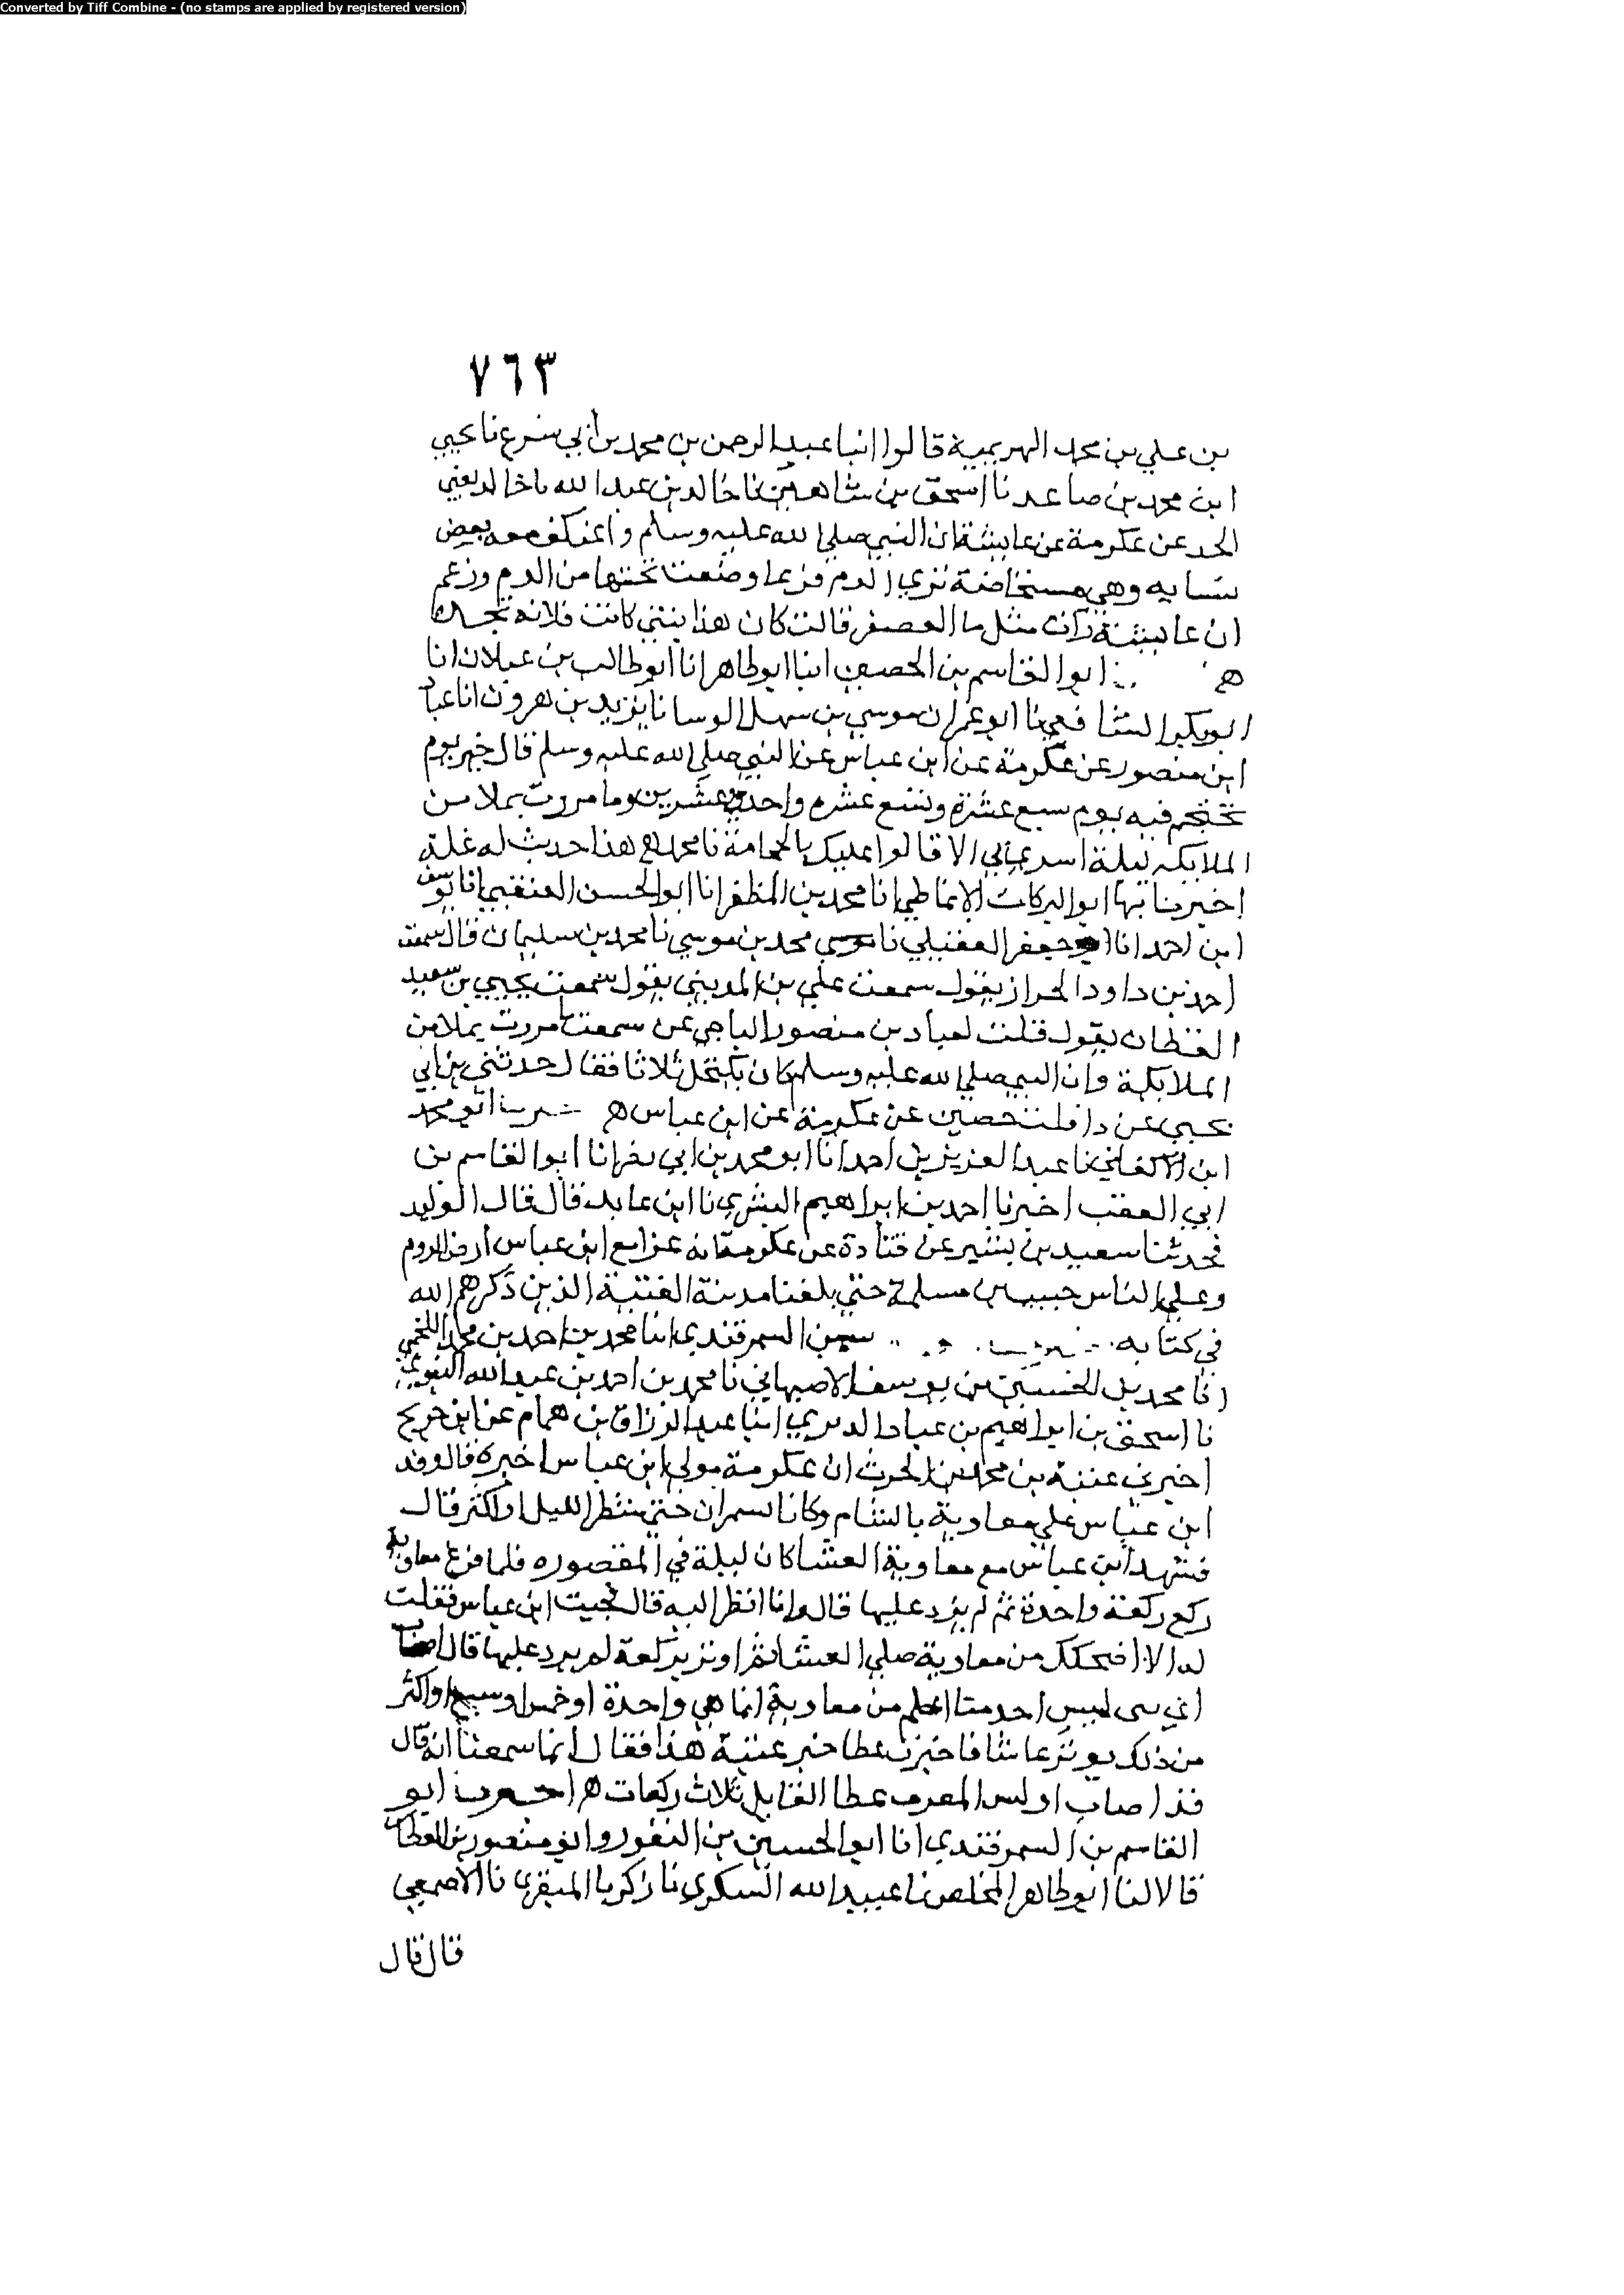 Converted by Tiff Combine - (no stamps are applied by registered version)
٧٦٣
بن علي بن محمد الهرثمية قالوا انبا عبد الرحمن بن محمد بن أبي شريح نا يحيي
ابن محمد بن صاعد نا اسحق بن شاهين نا خالد بن عبد الله نا خالد يعني
الحد عن عكرمة عن عايشة ان النبي صلي الله عليه وسلم واعتكف معه بعض
نسايه وهي مستحاضة تري الدم فربما وضعت تحتها من الدم وزعم
ان عايشة رأت مثل ما العصفر قالت كان هذا كانت فلانه تجده
ه ابو القاسم بن الحصين انبا ابو طاهر انا ابو طالب بن غيلان انا
ابو بكر الشافعي نا ابو عمران موسي بن سهل الوسا نا يزيد بن هرون انا عباد
ابن منصور عن عكرمة عن ابن عباس عن النبي صلي الله عليه وسلم قال خير يوم
تحتجم فيه يوم سبع عشرة وتسع عشره واحدي وعشرين وما مررت بملا من
الملايكه ليلة اسري بي الا قالوا عليك بالحجامة نا محمد هذا حديث له علة
اخبرنا بها ابو البركات الانماطي انا محمد بن المظفر انا ابو الحسن العتيقي انا يوسف
ابن احمد انا ابو جعفر العقيلي نا محمد بن موسي نا محمد بن سليمان قال سمعت
احمد بن داود الحراز يقول سمعت علي بن المديني يقول سمعت يحيي بن سعيد
القطان يقول قلت لعباد بن منصور الباجي عن سمعت ما مررت بملا من
الملايكة وان النبي صلي الله عليه وسلم كان يكتحل ثلاثا فقال حدثني بن ابي
يحيي عن داود بن حصين عن عكرمة عن ابن عباس ه ابو محمد
ابن الاكفاني نا عبد العزيز بن احمد انا ابو محمد بن ابي نصر انا ابو القاسم بن
ابي العقب اخبرنا احمد بن ابراهيم البشري نا ابن عايد قال قال الوليد
فحدثنا سعيد بن بشير عن قتادة عن عكرمة انه غزا مع ابن عباس أرض الروم
وعلي الناس حبيب بن مسلمة حتي بلغنا مدينة الفتية الذين ذكرهم الله
في كتابه بن السمرقندي انا محمد بن احمد بن محمد اللخمي
انا محمد بن الحسين بن يوسف الاصبهاني نا محمد بن احمد بن عبد الله النقوي
نا اسحق بن ابراهيم بن عباد الدبري انبا عبد الرزاق بن همام عن ابن جريج
اخبرني عتبة بن محمد بن الحرث ان عكرمة مولي ابن عباس اخبره قال وفد
ابن عباس علي معاوية بالشام وكانا يسمران حتي شطر الليل او اكثر قال
فشهد ابن عباس مع معاوية العشا كان ليلة في المقصوره فلما فرغ معاوية
ركع ركعة واحدة ثم لم يزد عليها قال وانا انظر اليه قال فجيت ابن عباس فقلت
له الا اضحكك من معاوية صلي العشا ثم اوتر بركعة لم يزد عليها قال اصاب
اي بني ليس احد منا اعلم من معاوية انما هي واحدة او خمس او سبع او اكثر
من ذلك يوتر بما شا فاخبرت عطا خبر عتبة هذا فقال انما سمعنا انه قال
قد اصاب اوليس المغرب عطا القايل ثلاث ركعات ه اخبرنا ابو
القاسم بن السمرقندي انا ابو الحسين بن النقور وابو منصور بن العطار
قالا لنا ابو طاهر المخلص نا عبيد الله السكري نا زكريا المنقري نا الاصمعي
قال قال